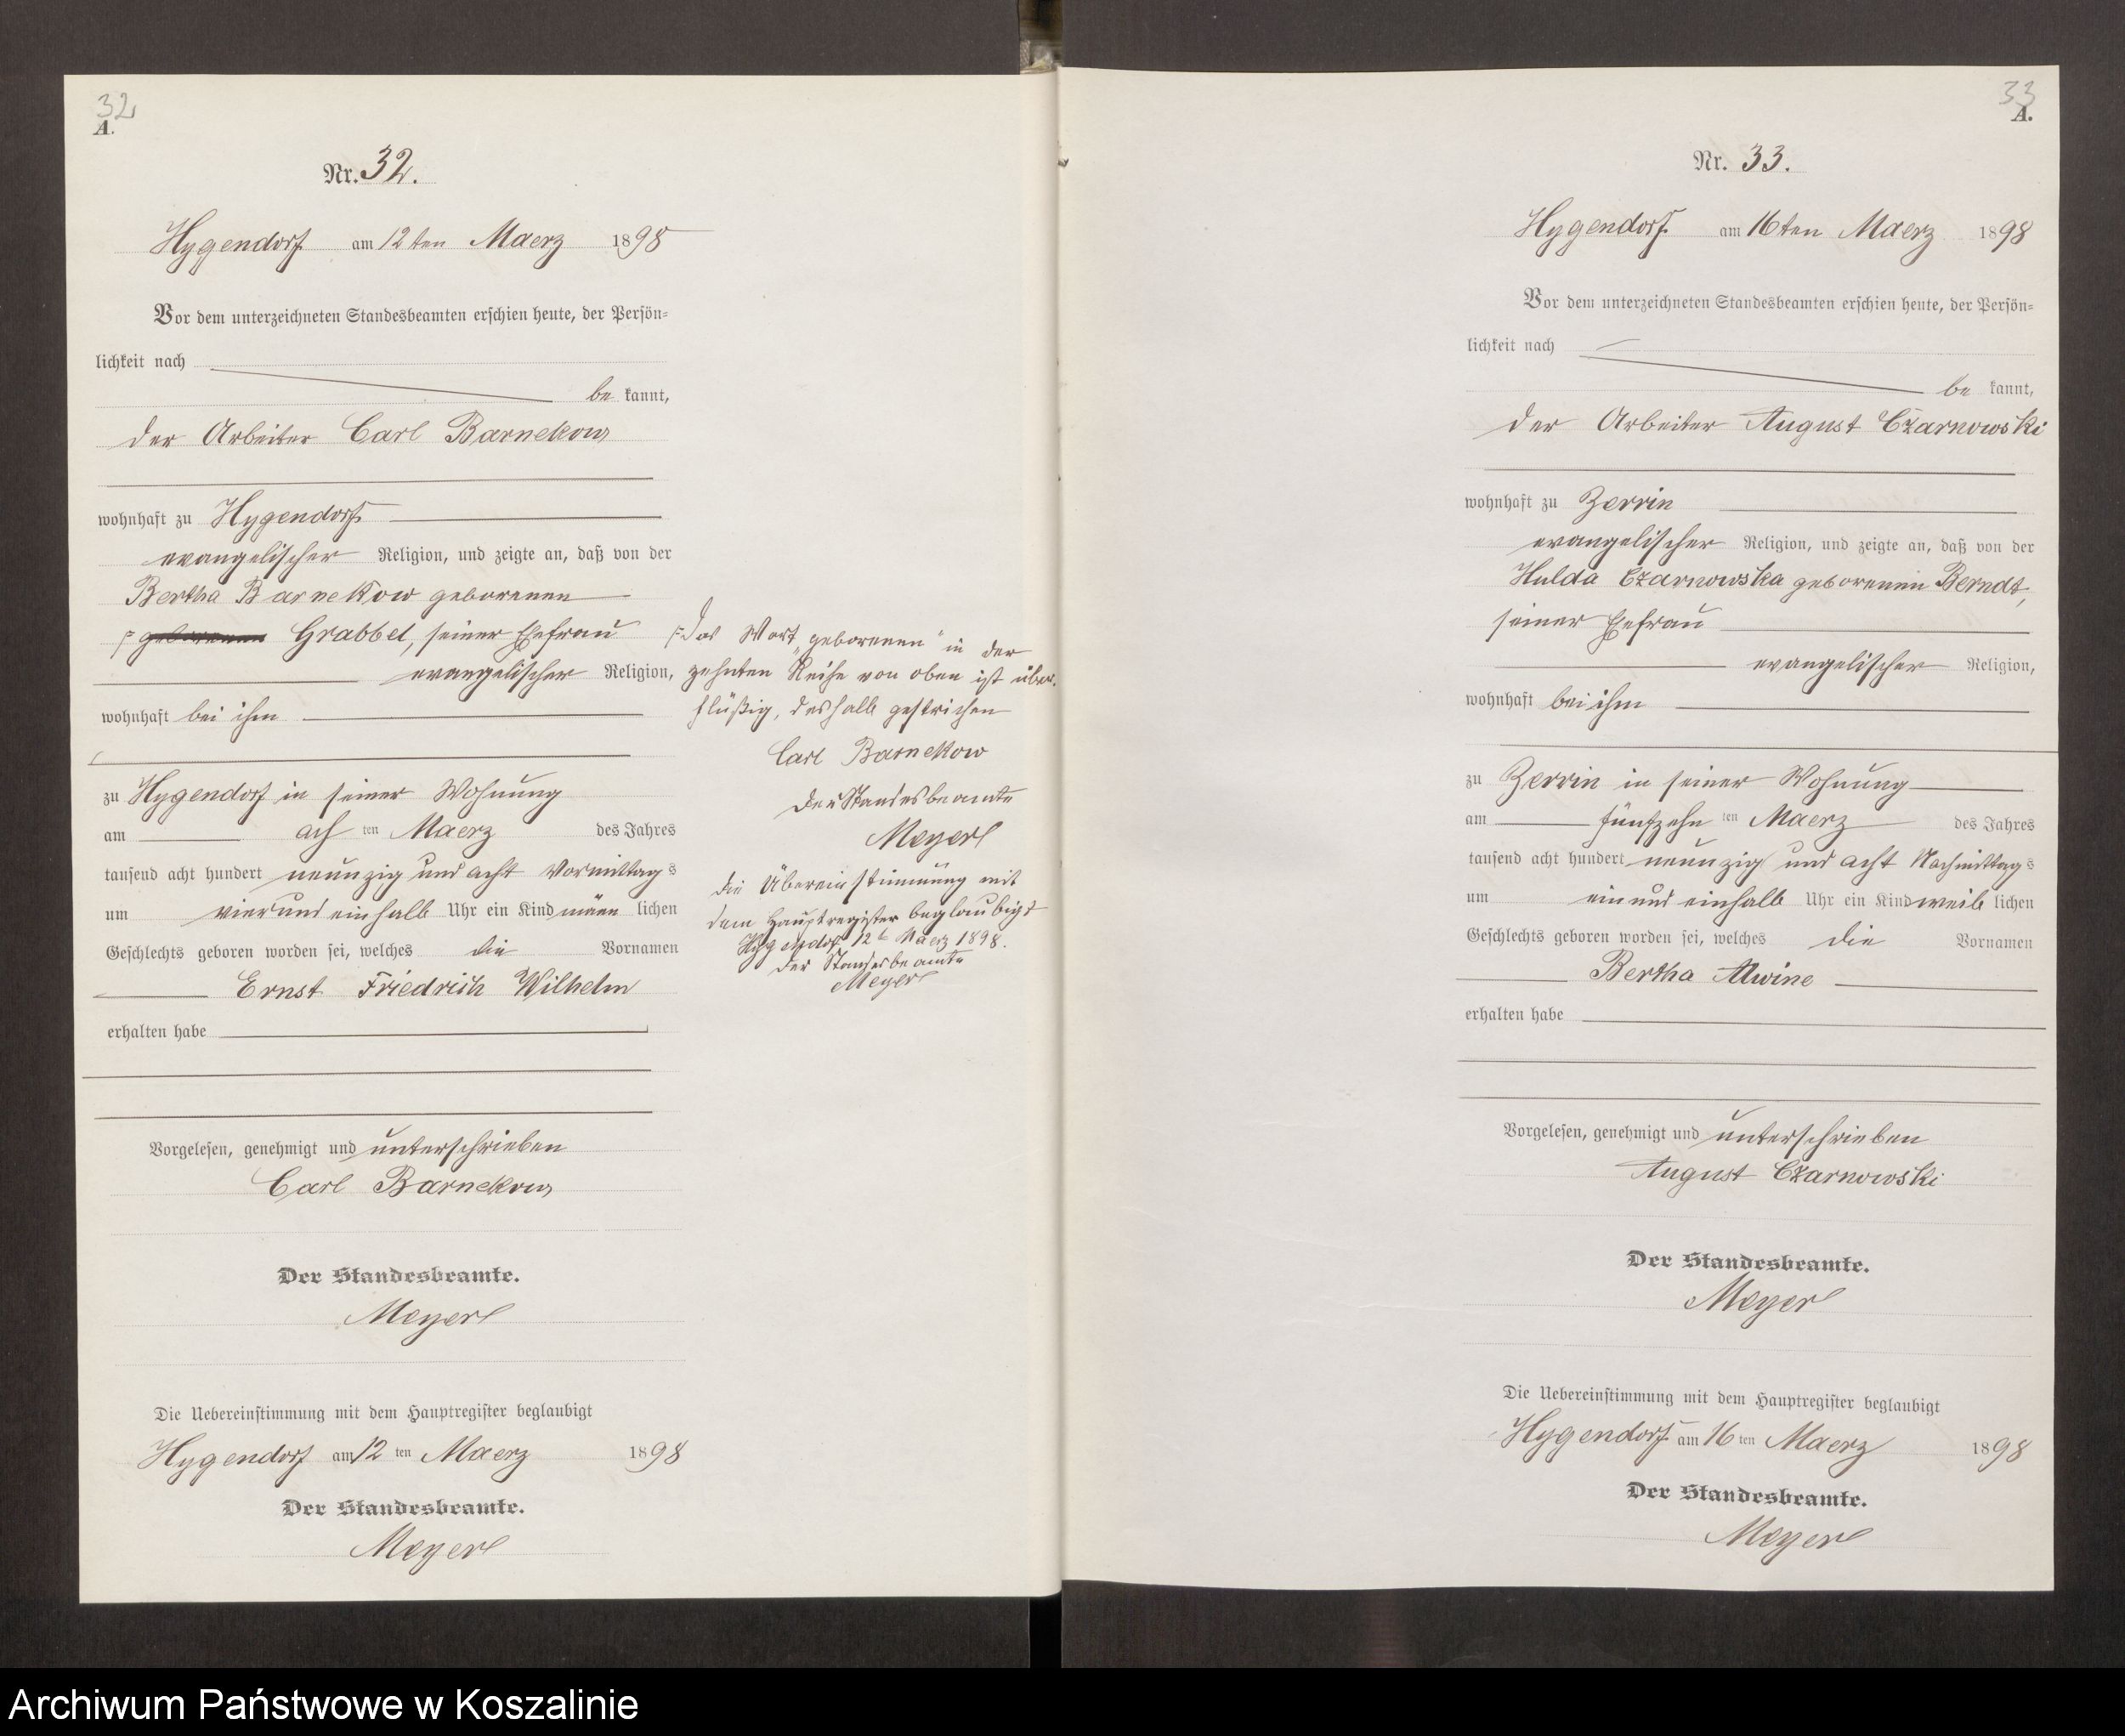 32
A.
Nr. 32.
Hygendorf am 12ten Maerz 1898
Vor dem unterzeichneten Standesbeamten erschien heute, der Persön-
lichkeit nach
be kannt,
der Arbeiter Carl Barnekow
wohnhaft zu Hygendorf
evangelischer Religion, und zeigte an, daß von der
Bertha Barnekow geborenen
geborenen Grabbel, seiner Ehefrau
evangelischer Religion,
wohnhaft bei ihm
zu Hygendorf in seiner Wohnung
am ach ten Maerz des Jahres
tausend acht hundert neunzig und acht Vormittag s
um vier und ein halb Uhr ein Kind männ lichen
Geschlechts geboren worden sei, welches die Vornamen
Ernst Friedrich Wilhelm
erhalten habe
Vorgelesen, genehmigt und unterschrieben
Carl Barnekow
Der Standesbeamte.
Meyer
Die Uebereinstimmung mit dem Hauptregister beglaubigt
Hygendorf am 12 ten Maerz 1898
Der Standesbeamte.
Meyer
Das Wort „geborenen" in der
zehnten Reihe von oben ist über-
flüßig, deshalb gestrichen
Carl Barnekow
Der Standesbeamte
Meyer
Die Übereinstimmung mit
dem Hauptregister beglaubigt
Hygendorf 12t Maerz 1898.
Der Standesbeamte
Meyer
33
A.
Nr. 33.
Hygendorf am 16ten Maerz 1898
Vor dem unterzeichneten Standesbeamten erschien heute, der Persön-
lichkeit nach
be kannt,
der Arbeiter August Czarnowski
wohnhaft zu Zerrin
evangelischer Religion, und zeigte an, daß von der
Hulda Czarnowska geborenen Berndt,
seiner Ehefrau
evangelischer Religion,
wohnhaft bei ihm
zu Zerrin in seiner Wohnung
am fünfzehn ten Maerz des Jahres
tausend acht hundert neunzig und acht Nachmittag s
um ein und einhalb Uhr ein Kind weib lichen
Geschlechts geboren worden sei, welches die Vornamen
Bertha Alwine
erhalten habe
Vorgelesen, genehmigt und unterschrieben
August Czarnowski
Der Standesbeamte.
Meyer
Die Uebereinstimmung mit dem Hauptregister beglaubigt
Hygendorf am 16 ten Maerz 1898
Der Standesbeamte.
Meyer
Archiwum Państwowe w Koszalinie